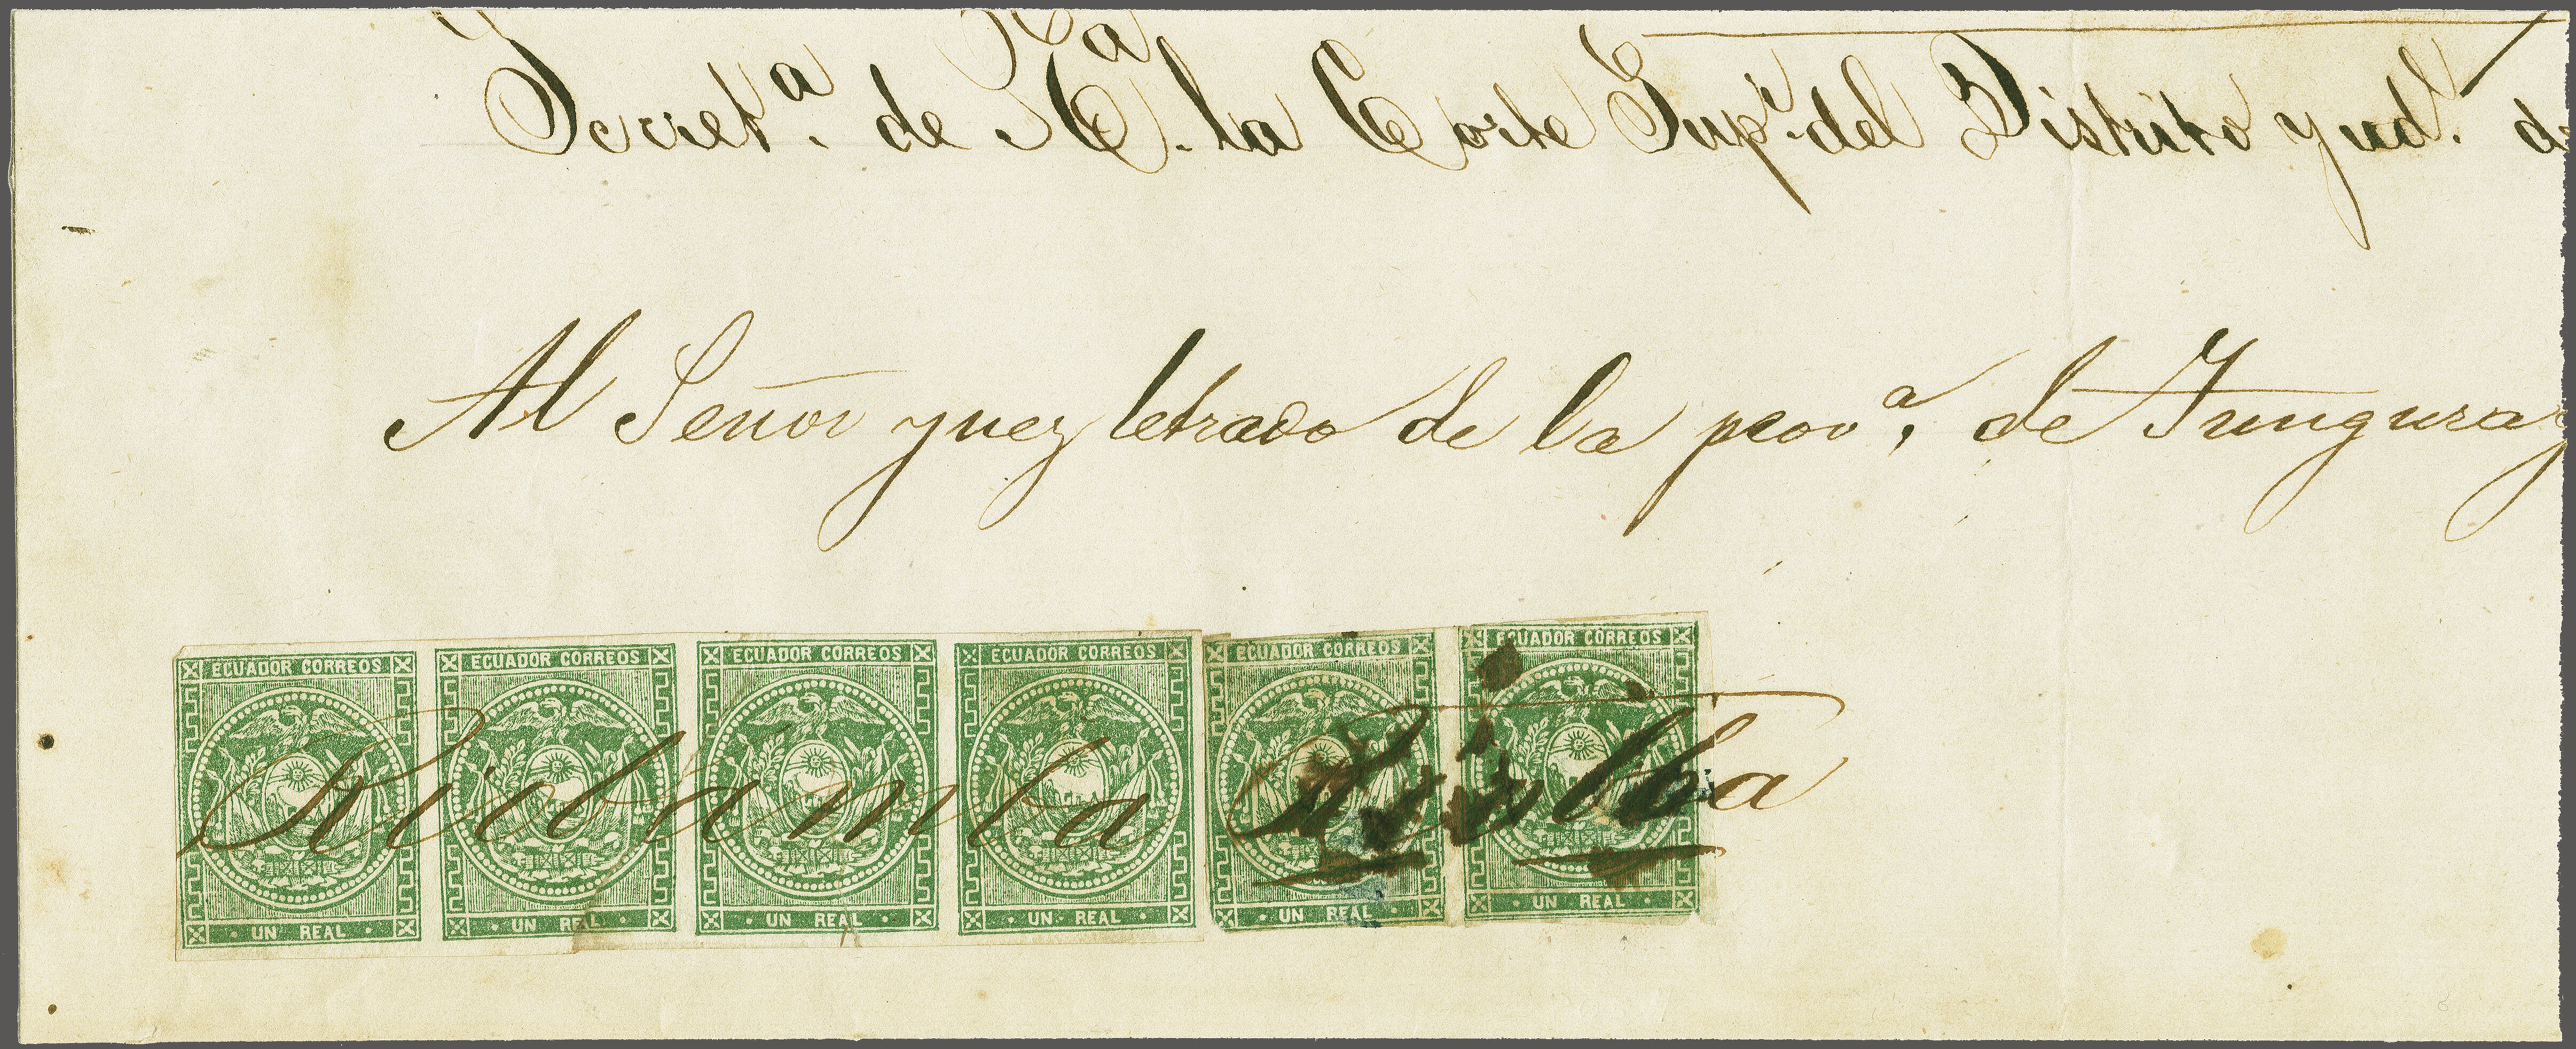 Secret.ª de Rª. la Corte Sup.r del Distrito yud.l de
Al Señor yuez letrado de la prov.ª de Tunguray
ECUADOR CORREOS ECUADOR CORREOS ECUADOR CORREOS ECUADOR CORREOS ECUADOR CORREOS ECUADOR CORREOS
Riobamba
UN REAL UN REAL UN REAL UN REAL UN REAL UN REAL